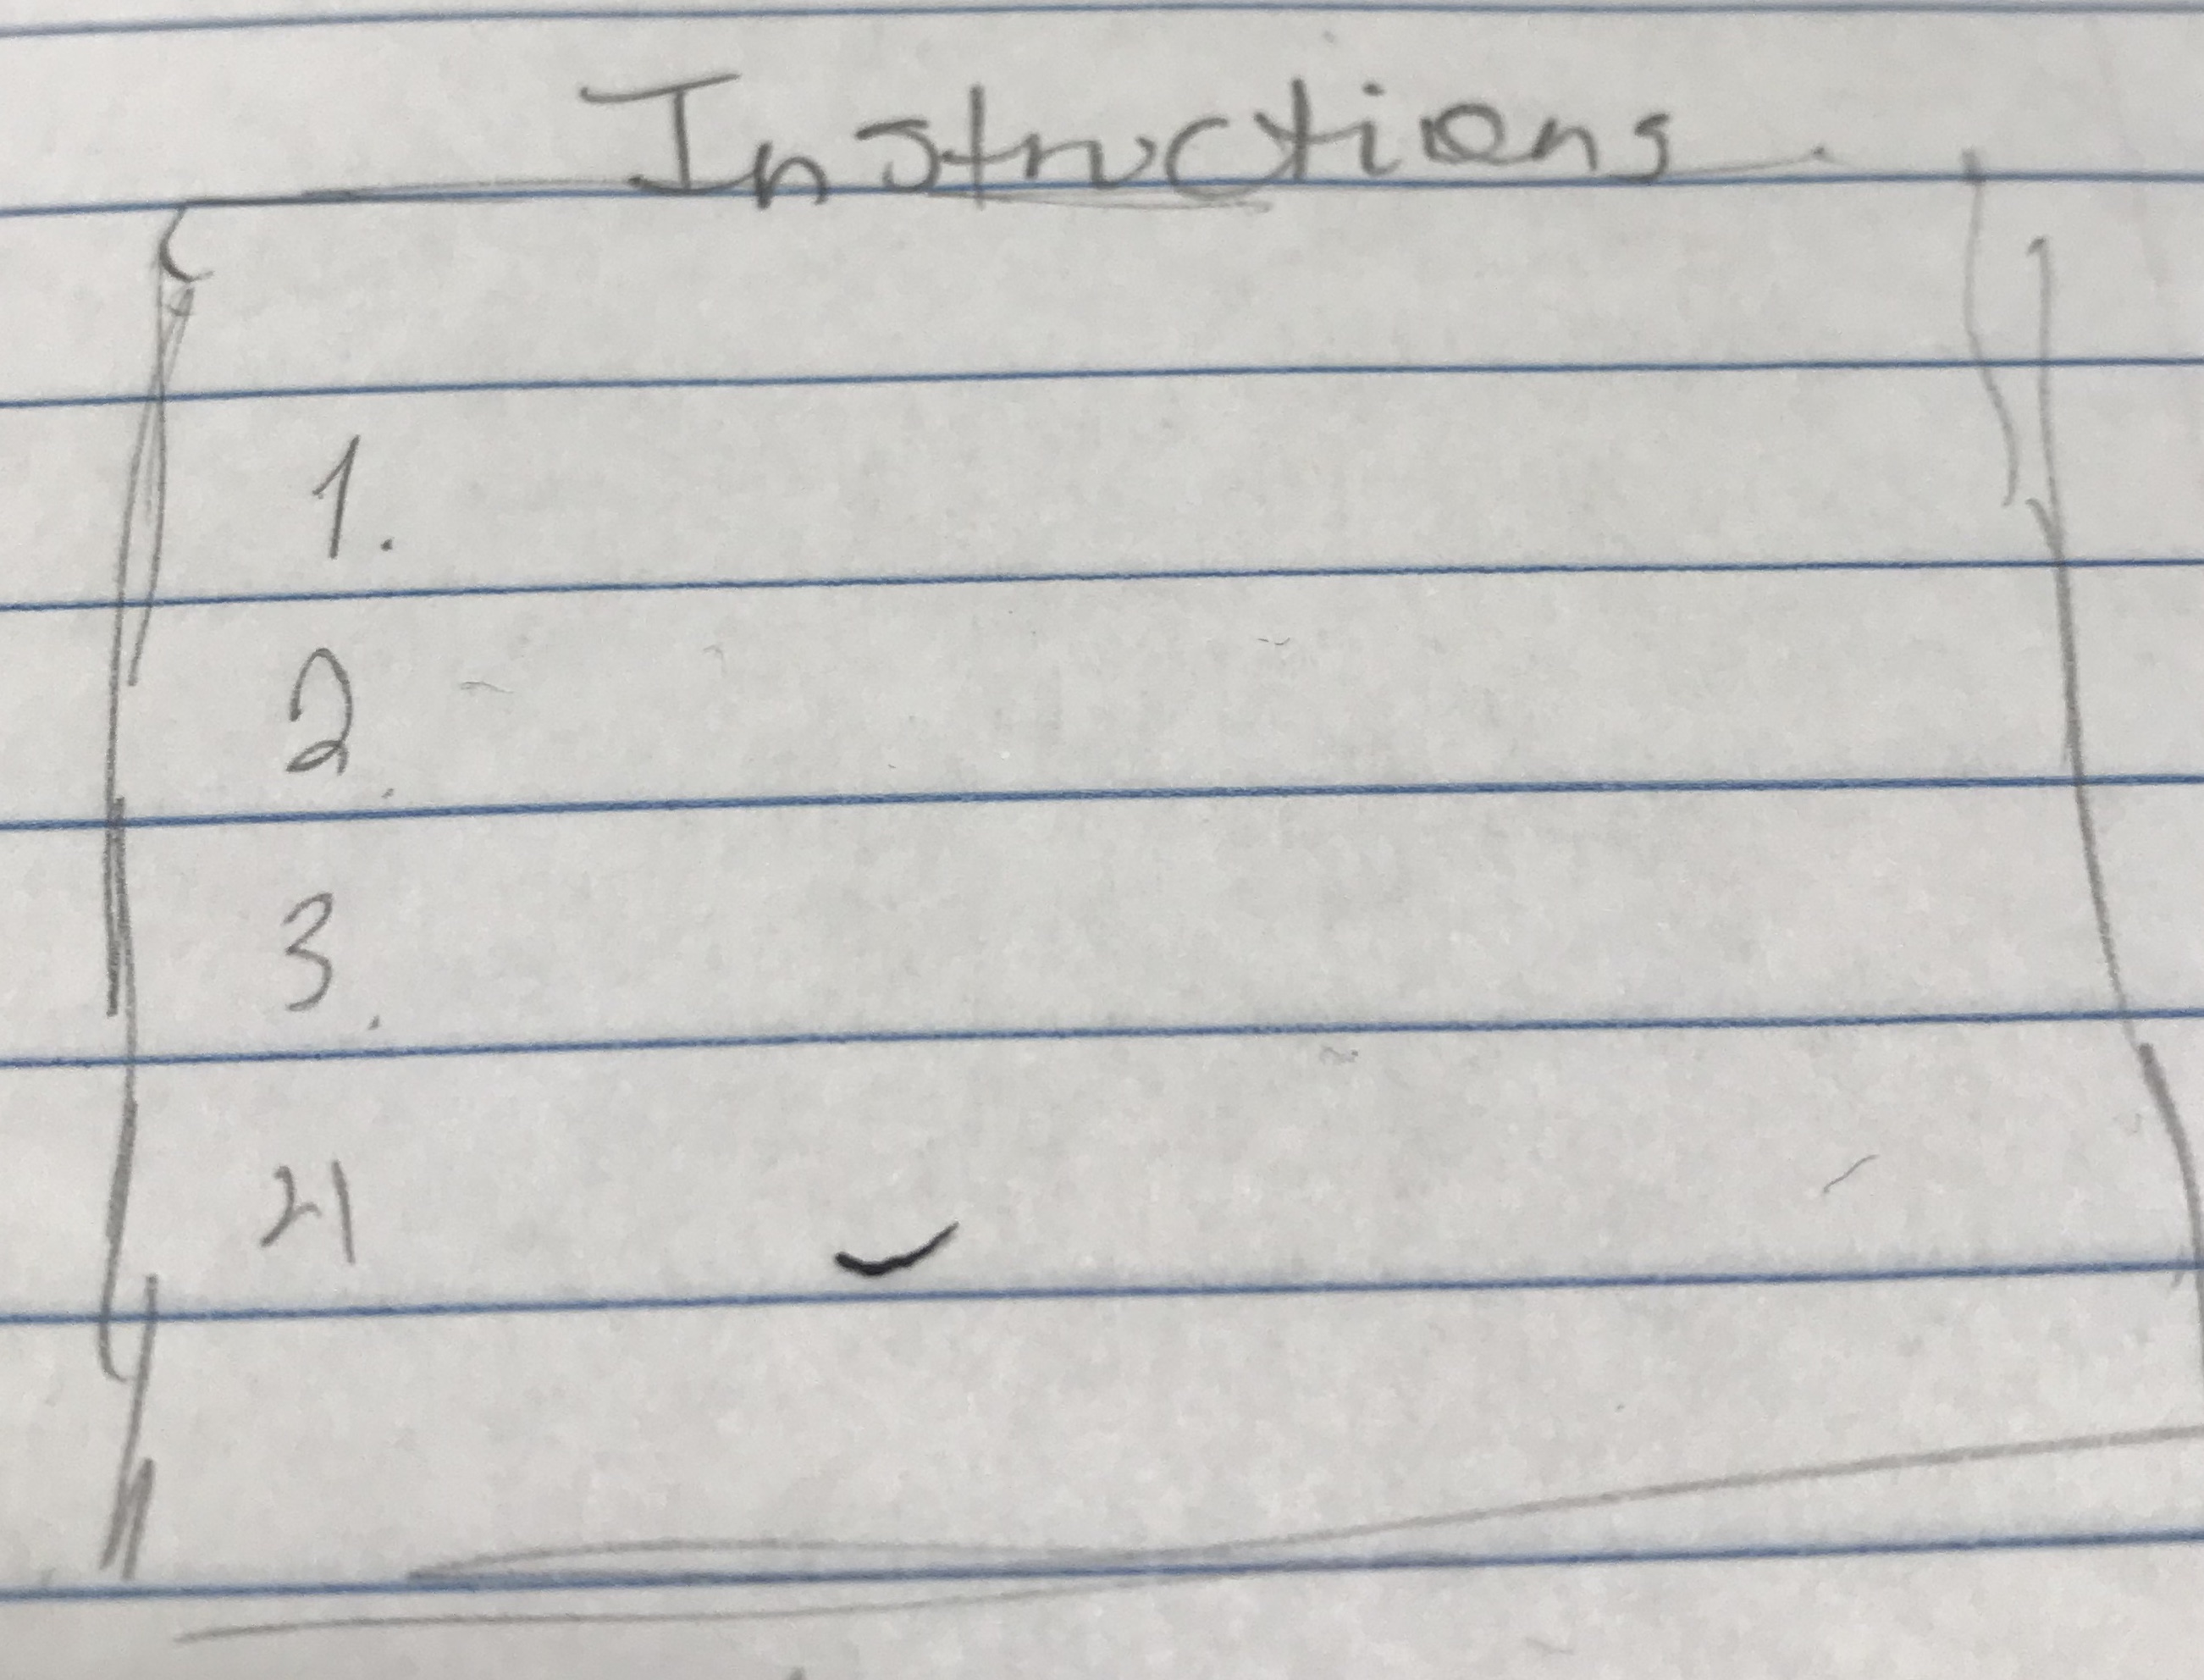 Instructions
1.
2.
3.
4